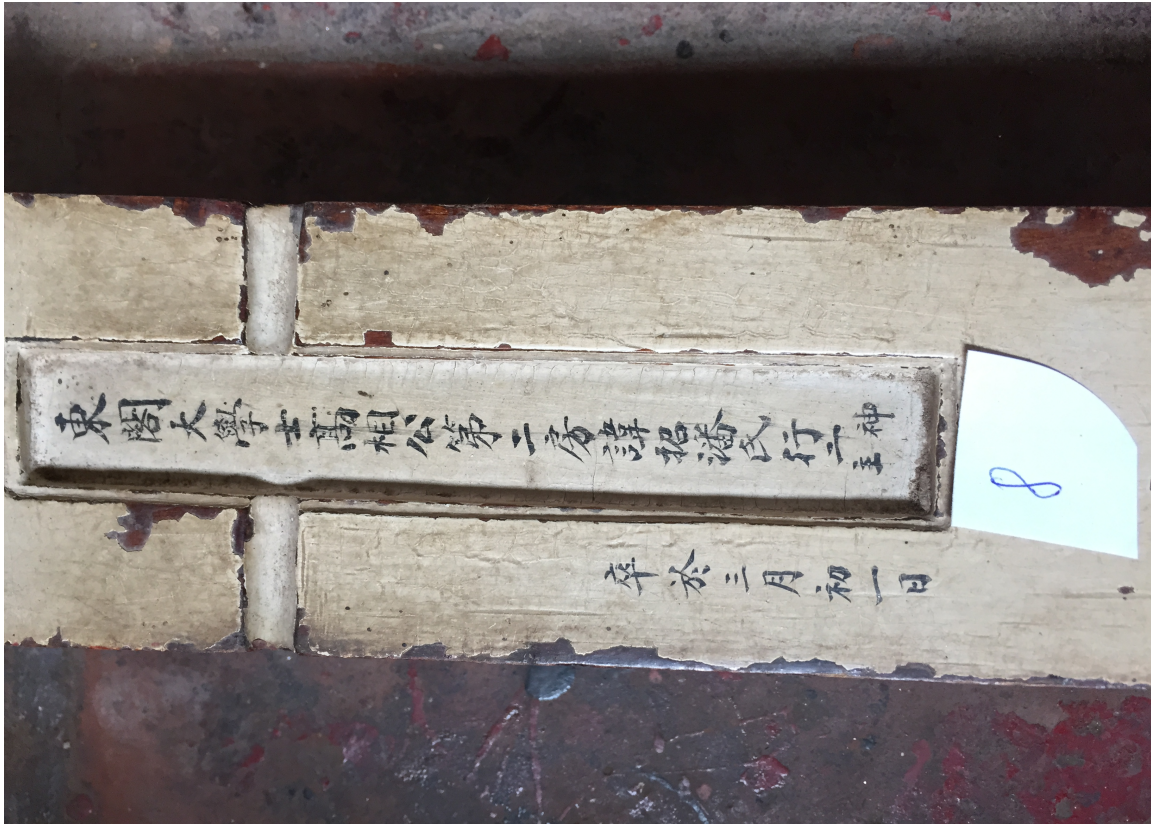 東閣大學士萬相公第二房諱招潘氏行二神主
卒於三月初一日
8